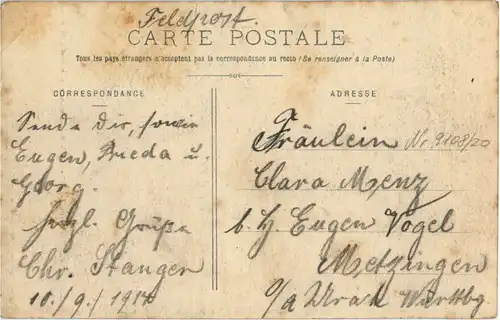 Feldpost.
CARTE POSTALE
Tous les pays étrangers n'acceptent pas la correspondance au recto (Se renseigner à la Poste)
CORRESPONDANCE
ADRESSE
Sende Dir, sowie
Eugen, Frieda u.
Georg.
herzl. Grüße
Chr. Stanger
10./9./1914
Fräulein
Nr. 9108/20
Clara Menz
b. H. Eugen Vogel
Metzingen
O/A Urach Württbg.